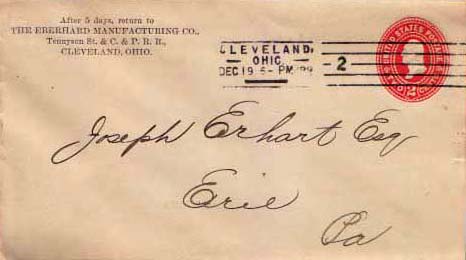 After 5 days, return to
THE EBERHARD MANUFACTURING CO.,
Tennyson St. & C. & P. R. R.,
CLEVELAND, OHIO.
CLEVELAND,
OHIO
DEC 19 6-PM 99
2
UNITED STATES POSTAGE
TWO 2 CENTS
Joseph Erhart Esq
Erie
Pa